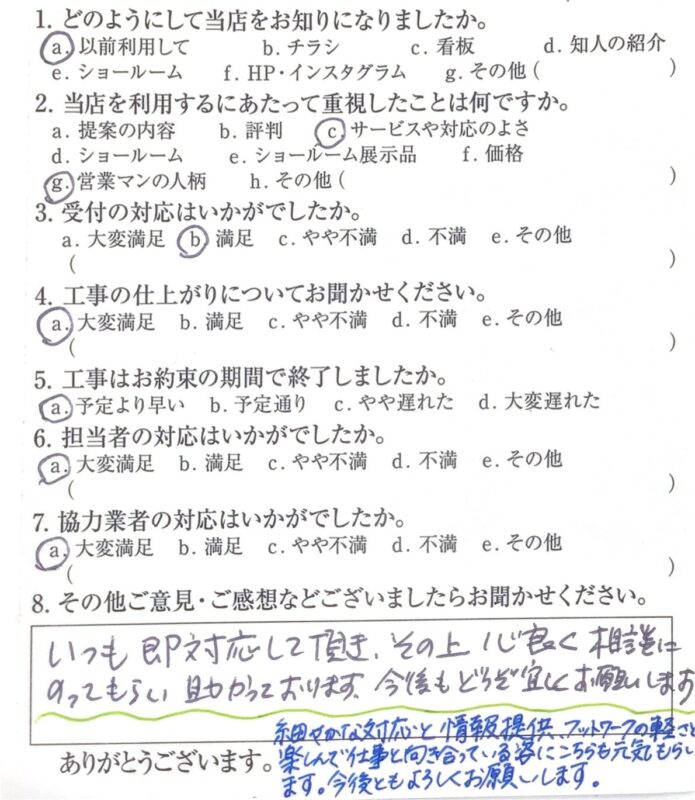 1. どのようにして当店をお知りになりましたか。
a. 以前利用して b. チラシ c. 看板 d. 知人の紹介
e. ショールーム f. HP・インスタグラム g. その他( )
2. 当店を利用するにあたって重視したことは何ですか。
a. 提案の内容 b. 評判 c. サービスや対応のよさ
d. ショールーム e. ショールーム展示品 f. 価格
g. 営業マンの人柄 h. その他( )
3. 受付の対応はいかがでしたか。
a. 大変満足 b. 満足 c. やや不満 d. 不満 e. その他
( )
4. 工事の仕上がりについてお聞かせください。
a. 大変満足 b. 満足 c. やや不満 d. 不満 e. その他
( )
5. 工事はお約束の期間で終了しましたか。
a. 予定より早い b. 予定通り c. やや遅れた d. 大変遅れた
6. 担当者の対応はいかがでしたか。
a. 大変満足 b. 満足 c. やや不満 d. 不満 e. その他
( )
7. 協力業者の対応はいかがでしたか。
a. 大変満足 b. 満足 c. やや不満 d. 不満 e. その他
( )
8. その他ご意見・ご感想などございましたらお聞かせください。
いつも即対応して頂き、その上心良く相談に
のってもらい助かっております、今後もどうぞ宜しくお願いします
細やかな対応と情報提供、フットワークの軽さと
ありがとうございます。楽しんで仕事と向き合っている姿にこちらも元気もらい
ます。今後ともよろしくお願いします。